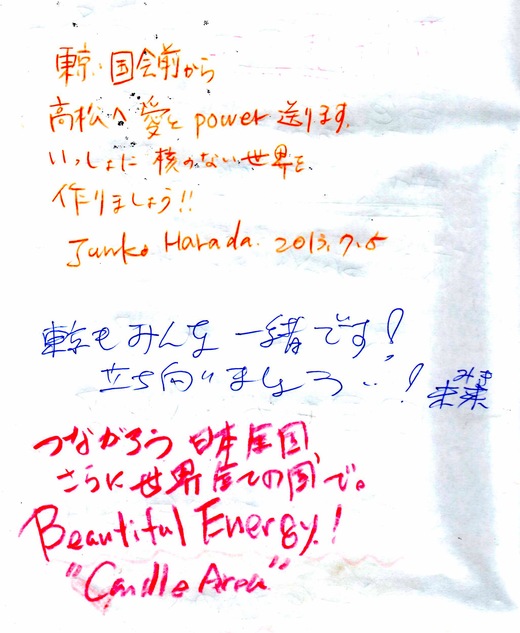 東京・国会前から
高松へ愛と power 送ります。
いっしょに 核のない世界を
作りましょう!!
Junko Harada. 2013.7.5
東京もみんな一緒です!
立ち向いましょう…!
つながろう 日本全国、
さらに世界全ての国で。
Beautiful Energy!
"Candle Area"